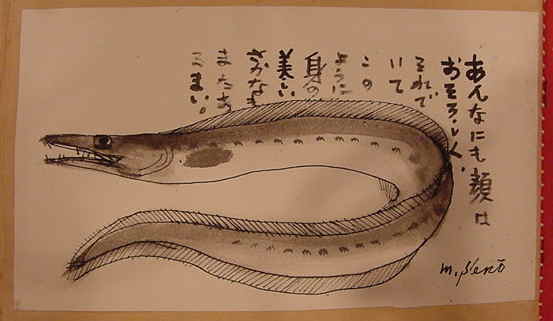 あんなにも顔は
おそろしく、
それで
いて
この
ように
身の
美しい
さかなも
またあ
るまい。